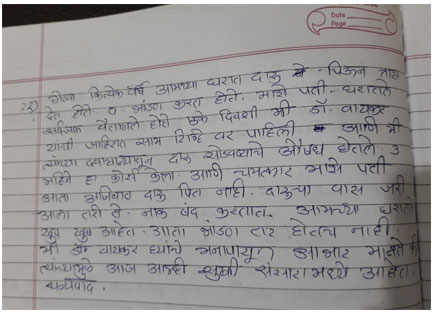 Date
Page
22) गेला कित्येक वर्ष आमच्या घरात दारू पिऊन त्रास
देत होते व भांडण करत होते. माझे पती. घरातले
सर्वजण वैतागले होते एके दिवशी मी डॉ. वायकर
यांची जाहिरात साम टिव्हि वर पाहिली आणि मी
त्यांच्या दवाखान्यातून दारू सोडवण्याचे औषध घेतले. 3
महिने हा कोर्स केला आणि चमत्कार माझे पती
आता अजिबात दारू पित नाही. दारूचा वास जरी
आला तरी ते नाक बंद करतात. आमच्या घरात
खुप खुष आहेत. आता भांडण तर होतच नाही.
मी डॉ वायकर ह्यांचे मनापासून आभार मानते की
त्यांच्यामुळे आज आम्ही सुखी संसारामध्ये आहोत.
धन्यवाद.